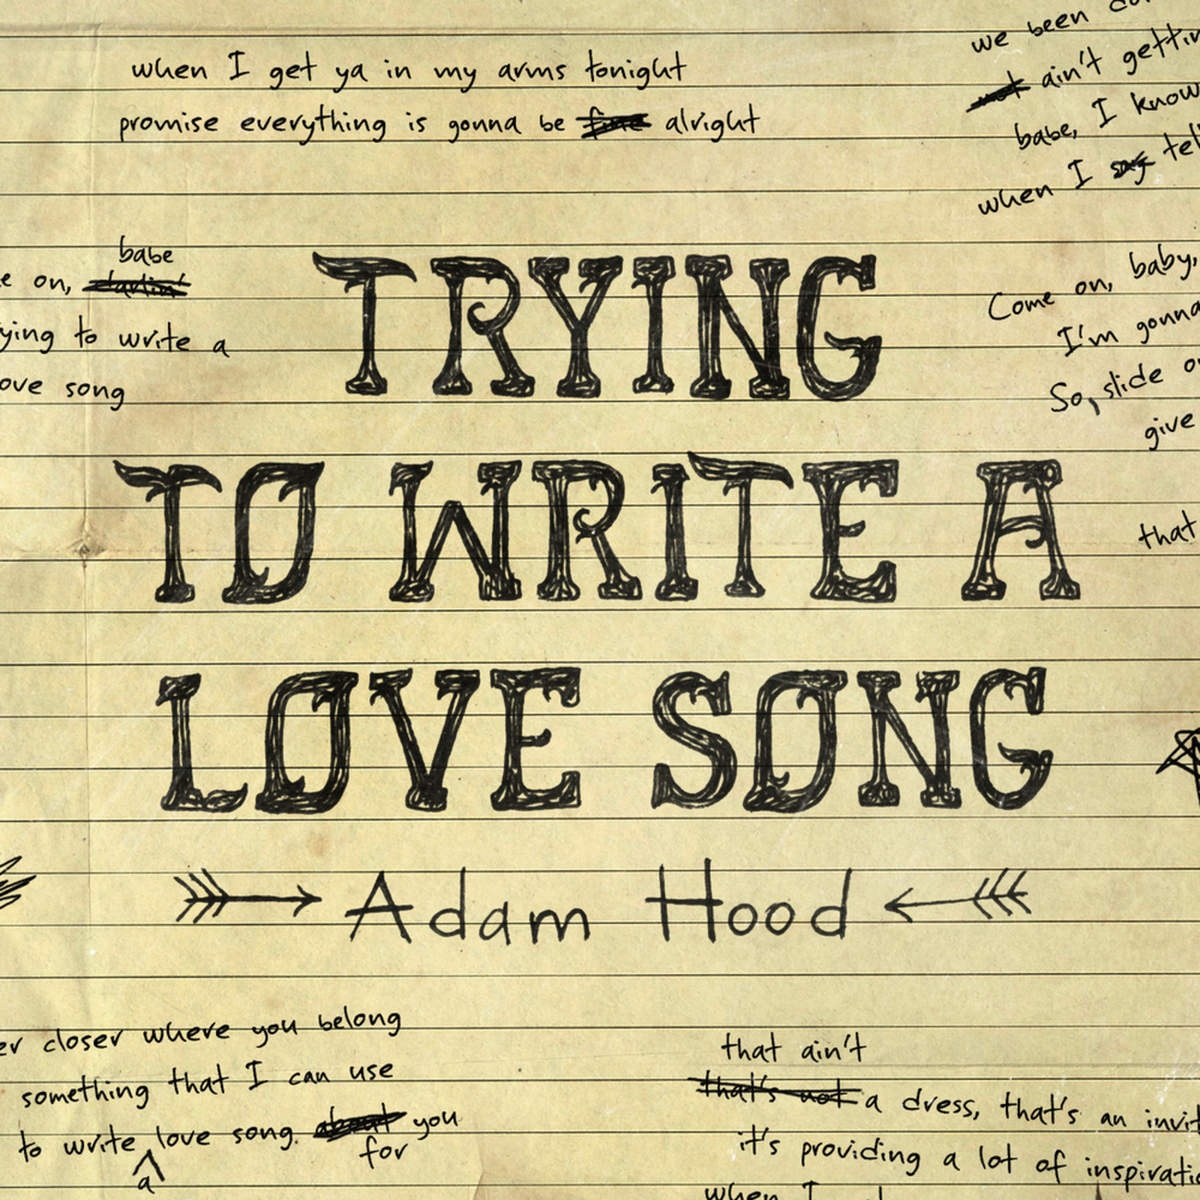 when I get ya in my arms tonight
promise everything is gonna be fine alright
we been
not ain't
babe, I know
when I say
babe
on, darlin'
to write a
song
Come on, baby,
I'm gonna
So, slide
give
that
TRYING
TO WRITE A
LOVE SONG
Adam Hood
closer where you belong
something that I can use
to write love song. about you
a
for
that ain't
that's not a dress, that's an
it's providing a lot of
when I